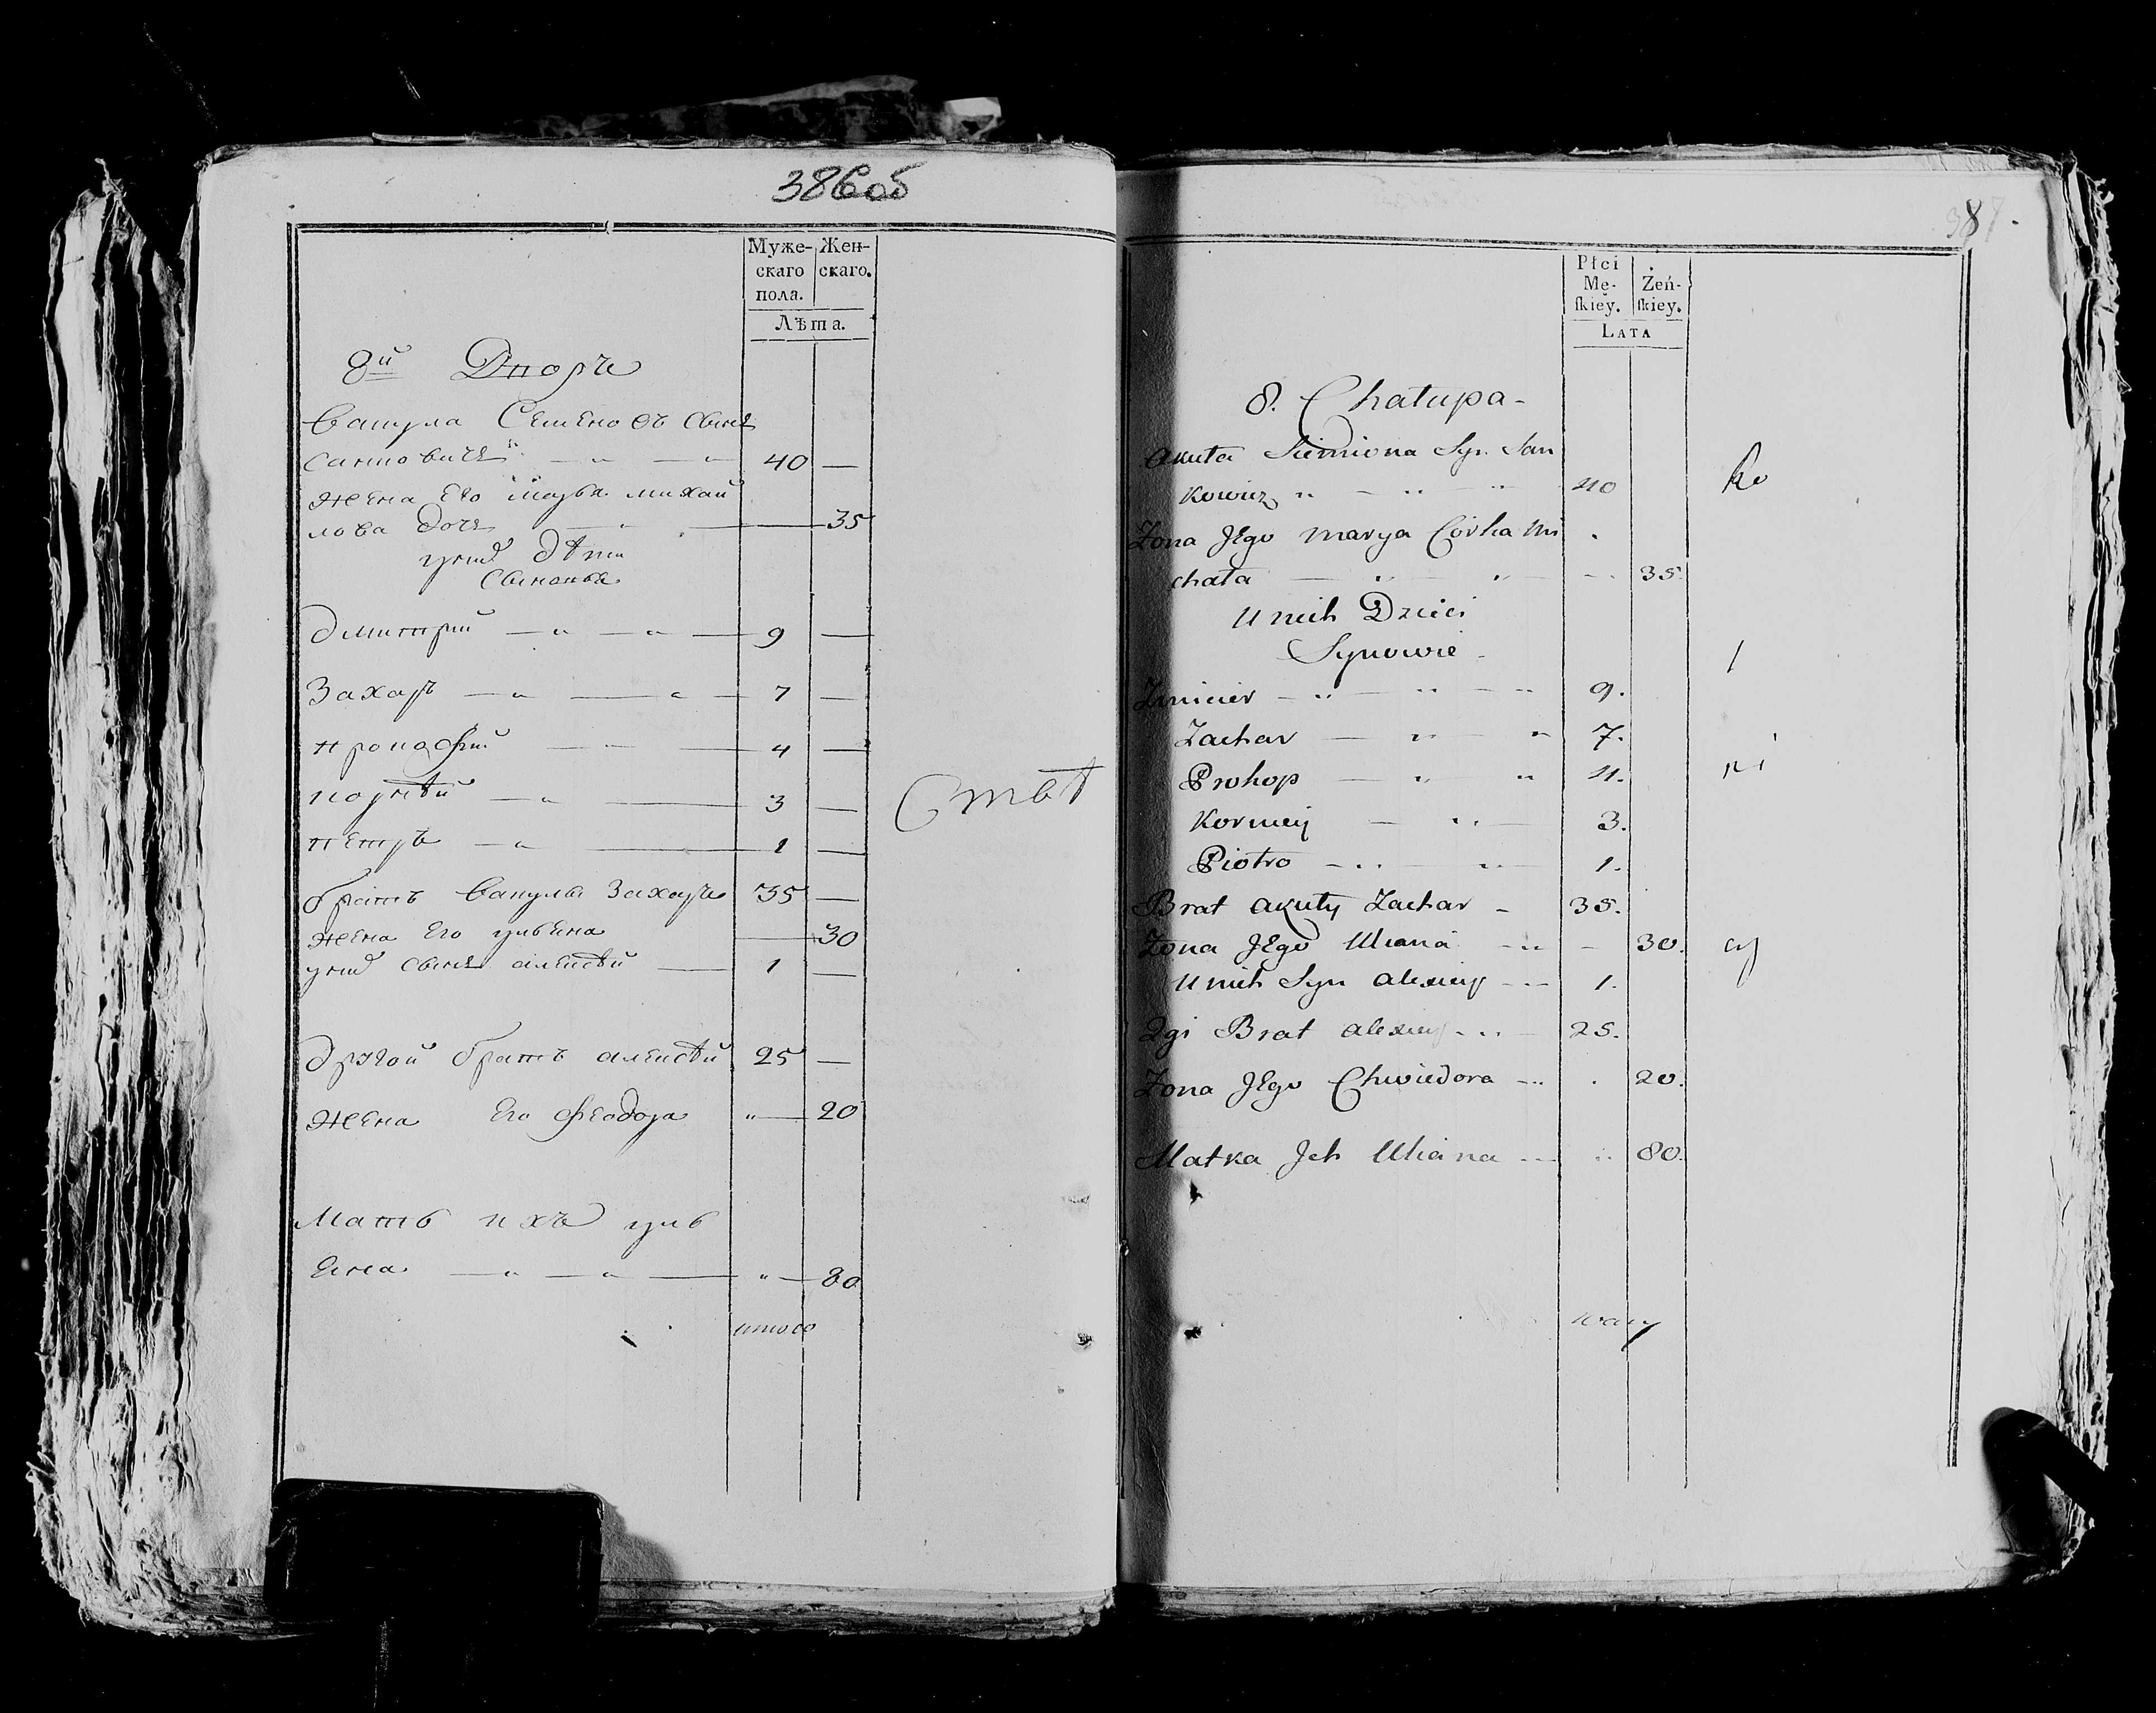 386 об
Муже-
скаго
пола.
Жен-
скаго.
Лѣта.
8й Дворъ
Вакула Семеновъ сынъ
Санковичъ 40 —
жена его марья михай
лова дочь — 35
у них дѣти
Сыновья
дмитрий 9 —
Захаръ 7 —
прокофий 4 —
корнѣй 3 —
петръ 1 —
братъ Вакулы Захаръ 35 —
жена Его ульяна — 30
у них сынъ алексѣй 1 —
другой братъ алексѣй 25 —
жена Его феодора 20
Мать ихъ уль
яна 80
итого
Ствѣ
387.
Płci
Mę-
skiey.
Żeń-
skiey.
LATA
8. Chałupa -
Akuła Siemiona Syn San
kowicz 40
Żona Jego Marya Córka Mi
chała 35.
U nich Dzieci
Synowie
Zmicier 9.
Zachar 7.
Prokop 4.
Korniey 3.
Piotro 1.
Brat Akuły Zachar 35.
Żona Jego Uliana 30.
U nich Syn Alexiey 1.
2gi Brat Alexiey 25.
Żona Jego Chwiedora 20.
Matka Jch Uliana 80.
ko